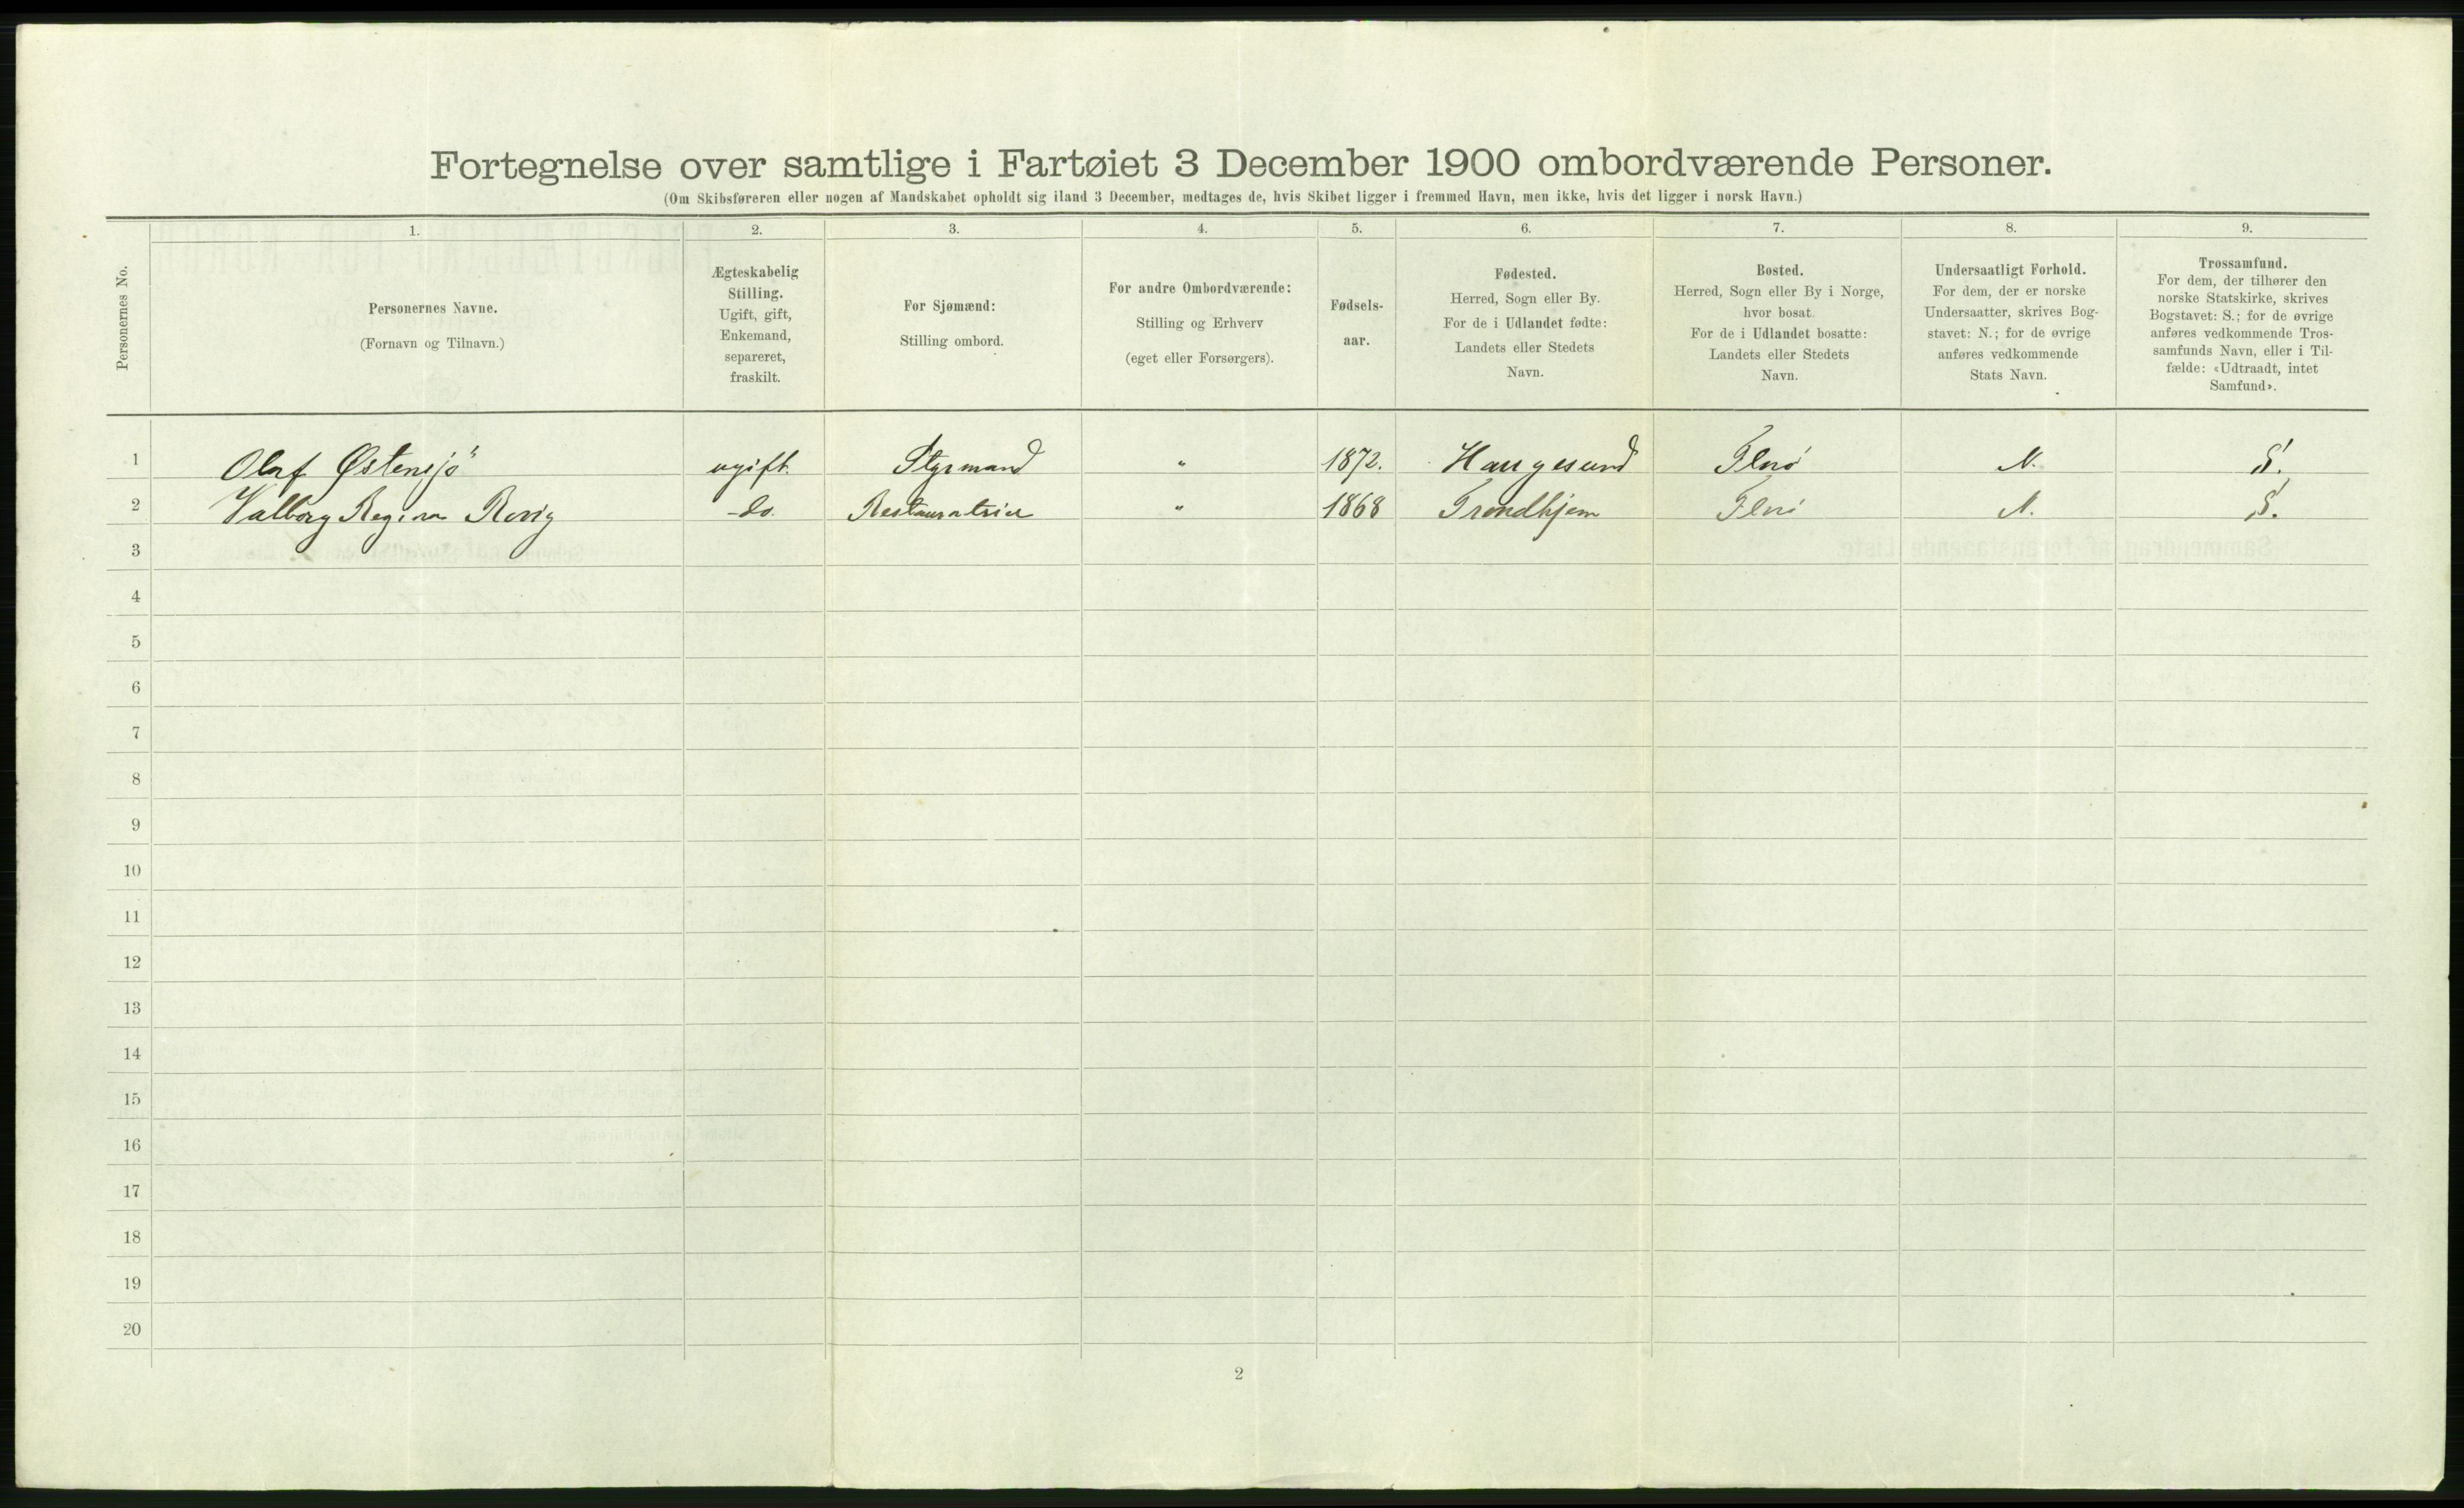 Fortegnelse over samtlige i Fartøiet 3 December 1900 ombordværende Personer.
(Om Skibsføreren eller nogen af Mandskabet opholdt sig iland 3 December, medtages de, hvis Skibet ligger i fremmed Havn, men ikke, hvis det ligger i norsk Havn.)
Personernes No.
1.
Personernes Navne.
(Fornavn og Tilnavn.)
2.
Ægteskabelig
Stilling.
Ugift, gift,
Enkemand,
separeret,
fraskilt.
3.
For Sjømænd:
Stilling ombord.
4.
For andre Ombordværende:
Stilling og Erhverv
(eget eller Forsørgers).
5.
Fødsels-
aar.
6.
Fødested.
Herred, Sogn eller By.
For de i Udlandet fødte:
Landets eller Stedets
Navn.
7.
Bosted.
Herred, Sogn eller By i Norge,
hvor bosat.
For de i Udlandet bosatte:
Landets eller Stedets
Navn.
8.
Undersaatligt Forhold.
For dem, der er norske
Undersaatter, skrives Bog-
stavet: N.; for de øvrige
anføres vedkommende
Stats Navn.
9.
Trossamfund.
For dem, der tilhører den
norske Statskirke, skrives
Bogstavet: S.; for de øvrige
anføres vedkommende Tros-
samfunds Navn, eller i Til-
fælde: «Udtraadt, intet
Samfund».
1 Olaf Østensjö ugift. Styrmand " 1872. Haugesund N. S.
2 Valborg Regina do. " 1868 Trondhjem N. S.
3
4
5
6
7
8
9
10
11
12
13
14
15
16
17
18
19
20
2